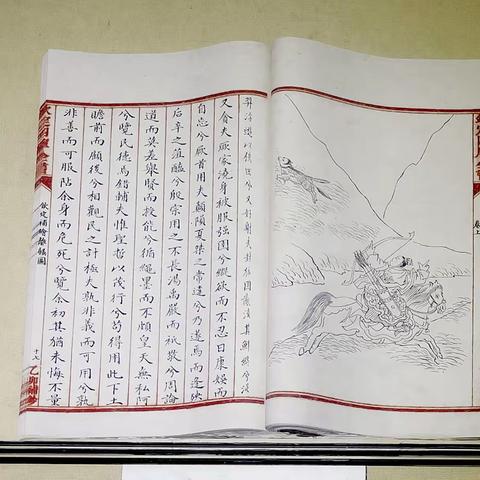 羿淫遊以佚田兮又好射夫封狐固亂流其鮮終兮浞
又貪夫厥家澆身被服強圉兮縱欲而不忍日康娛而
自忘兮厥首用夫顛隕夏桀之常違兮乃遂焉而逢殃
后辛之菹醢兮殷宗用之不長湯禹嚴而祗敬兮周論
道而莫差舉賢而授能兮循繩墨而不頗皇天無私阿
兮覽民德焉錯輔夫惟聖哲以茂行兮苟得用此下土
瞻前而顧後兮相觀民之計極夫孰非義而可用兮孰
非善而可服阽余身而危死兮覽余初其猶未悔不量
欽定四庫全書
欽定補繪離騷圖
十七
卷上